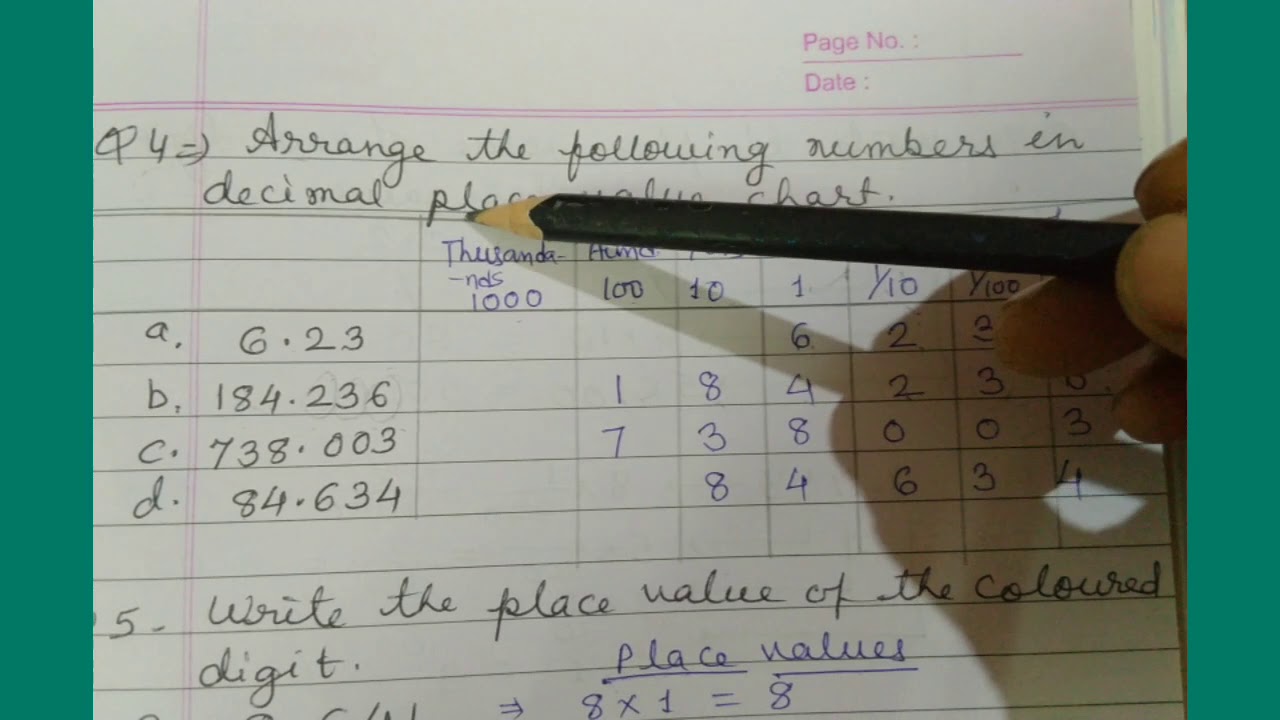 Page No. :
Date :
Q 4 => Arrange the following numbers in
decimal place value chart.
Thusanda-
-nds
1000 100 10 1 1/10 1/100
a. 6.23 6 2 3
b. 184.236 1 8 4 2 3
c. 738.003 7 3 8 0 0 3
d. 84.634 8 4 6 3 4
5- Write the place value of the coloured
digit.
Place values
⇒ 8 × 1 = 8